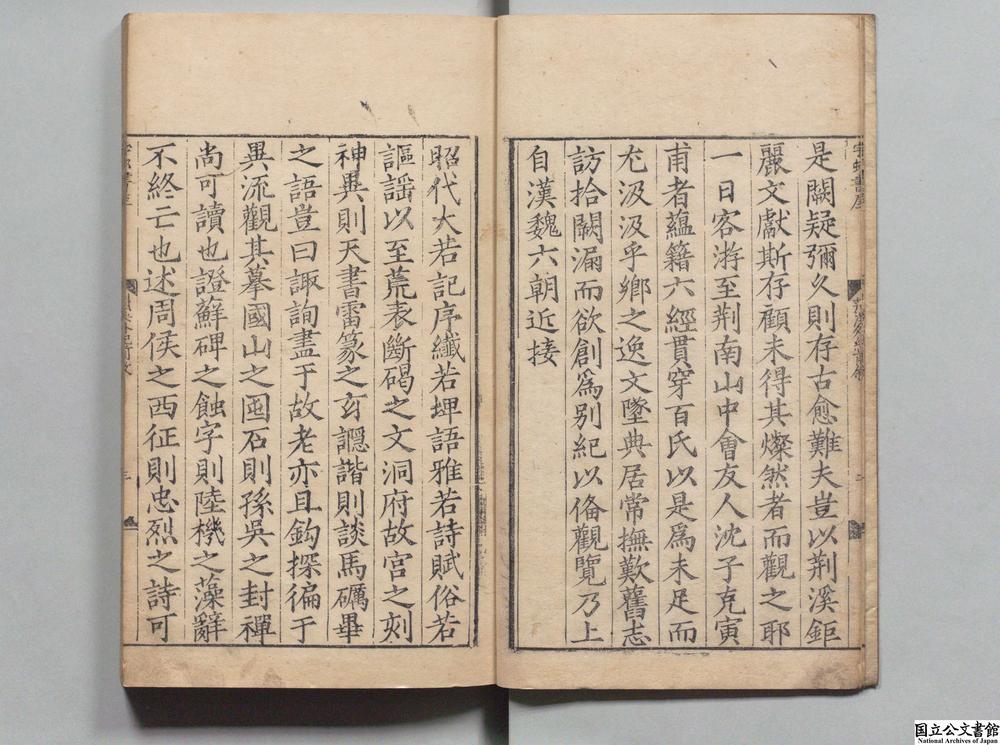 是闕疑彌久則存古愈難夫豈以荆溪鉅
麗文獻斯存顧未得其燦然者而觀之耶
一日客游至荆南山中會友人沈子克寅
甫者蘊籍六經貫穿百氏以是爲未足而
尤汲汲乎鄉之逸文墜典居常撫歎舊志
訪拾闕漏而欲創爲别紀以俻觀覽乃上
自漢魏六朝近接
昭代大若記序纖若埋語雅若詩賦俗若
謳謡以至荒表斷碣之文洞府故宫之刻
神異則天書雷篆之玄讔諧則談馬礪畢
之語豈曰諏詢盡于故老亦且鈎探徧于
異流觀其摹國山之囤石則孫吳之封禪
尚可讀也證蘚碑之蝕字則陸機之藻辭
不終亡也述周侯之西征則忠烈之詩可
国立公文書館
National Archives of Japan